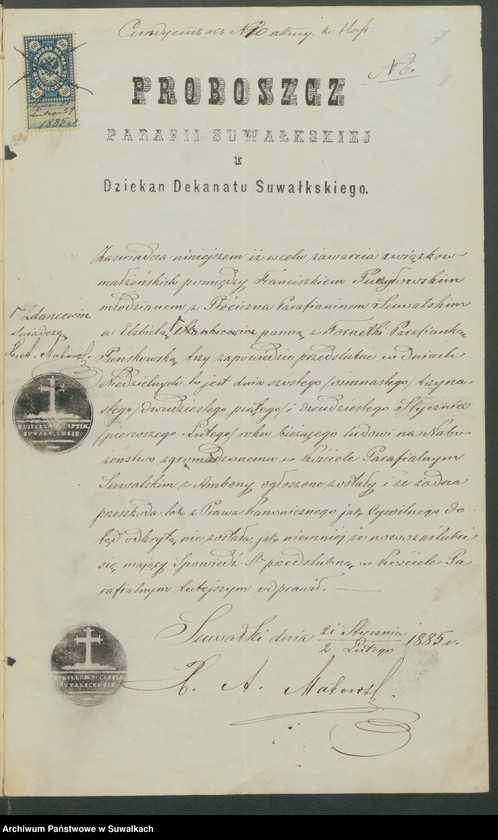 7
№ 6.
PROBOSZCZ
PARAFII SUWAŁKSKIEJ
I
Dziekan Dekanatu Suwałkskiego.
60
60
1885
Zaświadcza niniejszem iż w celu zawarcia związków
małżeńskich pomiędzy Franciszkiem
młodzianem z Płociczna Parafianinem Suwalskim
a Elżbietą panną z Fornetki Parafianką
Zdancewicz
świadczę
X. A. Makow
Puńskowską trzy zapowiedzie przedślubne w dniach
Niedzielnych to jest dnia szóstego /osmnastego/ trzyna-
stego /dwudziestego piątego/ i dwudziestego Stycznia
/pierwszego Lutego/ roku bieżącego ludowi na Nabo-
żeństwo zgromadzonemu w kościele Parafialnym
Suwalskim z Ambony ogłoszone zostały i że żadna
przeszkoda tak z Prawa kanonicznego jak Cywilnego do-
tąd odkrytą nie została jak niemniej że nowozaślubić
się mający Spowiedź Stą przedślubną w kościele Pa-
rafialnym tutejszym odprawił.
SIGILLUM ECCLESIÆ
SUVALCENSIS
Suwałki dnia 21 Stycznia / 2 Lutego 1885 r.
X. A. Makow
SIGILLUM ECCLESIÆ
SUVALCENSIS
Archiwum Państwowe w Suwałkach